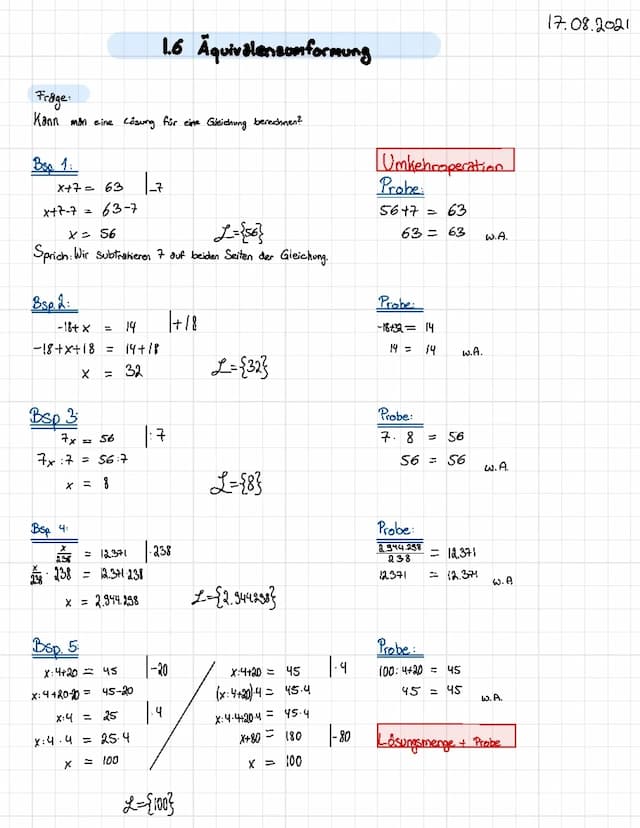 17.08.2021
1.6 Äquivalenzumformung
Frage:
Kann man eine Lösung für eine Gleichung berechnen?
Bsp 1:
x+7 = 63 |-7
x+7-7 = 63-7
x = 56
L={56}
Sprich: Wir subtrahieren 7 auf beiden Seiten der Gleichung.
Umkehroperation
Probe:
56+7 = 63
63 = 63 w.A.
Bsp. 2:
-18+x = 14 |+18
-18+x+18 = 14+18
x = 32
L={32}
Probe:
-18+32 = 14
14 = 14 w.A.
Bsp 3:
7x = 56 |:7
7x:7 = 56:7
x = 8
L={8}
Probe:
7·8 = 56
56 = 56 w.A.
Bsp 4:
x/238 = 12.371 |·238
x/238 · 238 = 12.371·238
x = 2.944.298
L={2.944.298}
Probe:
2.944.298/238 = 12.371
12.371 = 12.371 w.A
Bsp. 5:
x:4+20 = 45 |-20
x:4+20-20 = 45-20
x:4 = 25 |·4
x:4·4 = 25·4
x = 100
x:4+20 = 45 |·4
(x:4+20)·4 = 45·4
x:4·4+20·4 = 45·4
x+80 = 180 |-80
x = 100
L={100}
Probe:
100:4+20 = 45
45 = 45 w.A.
Lösungsmenge + Probe